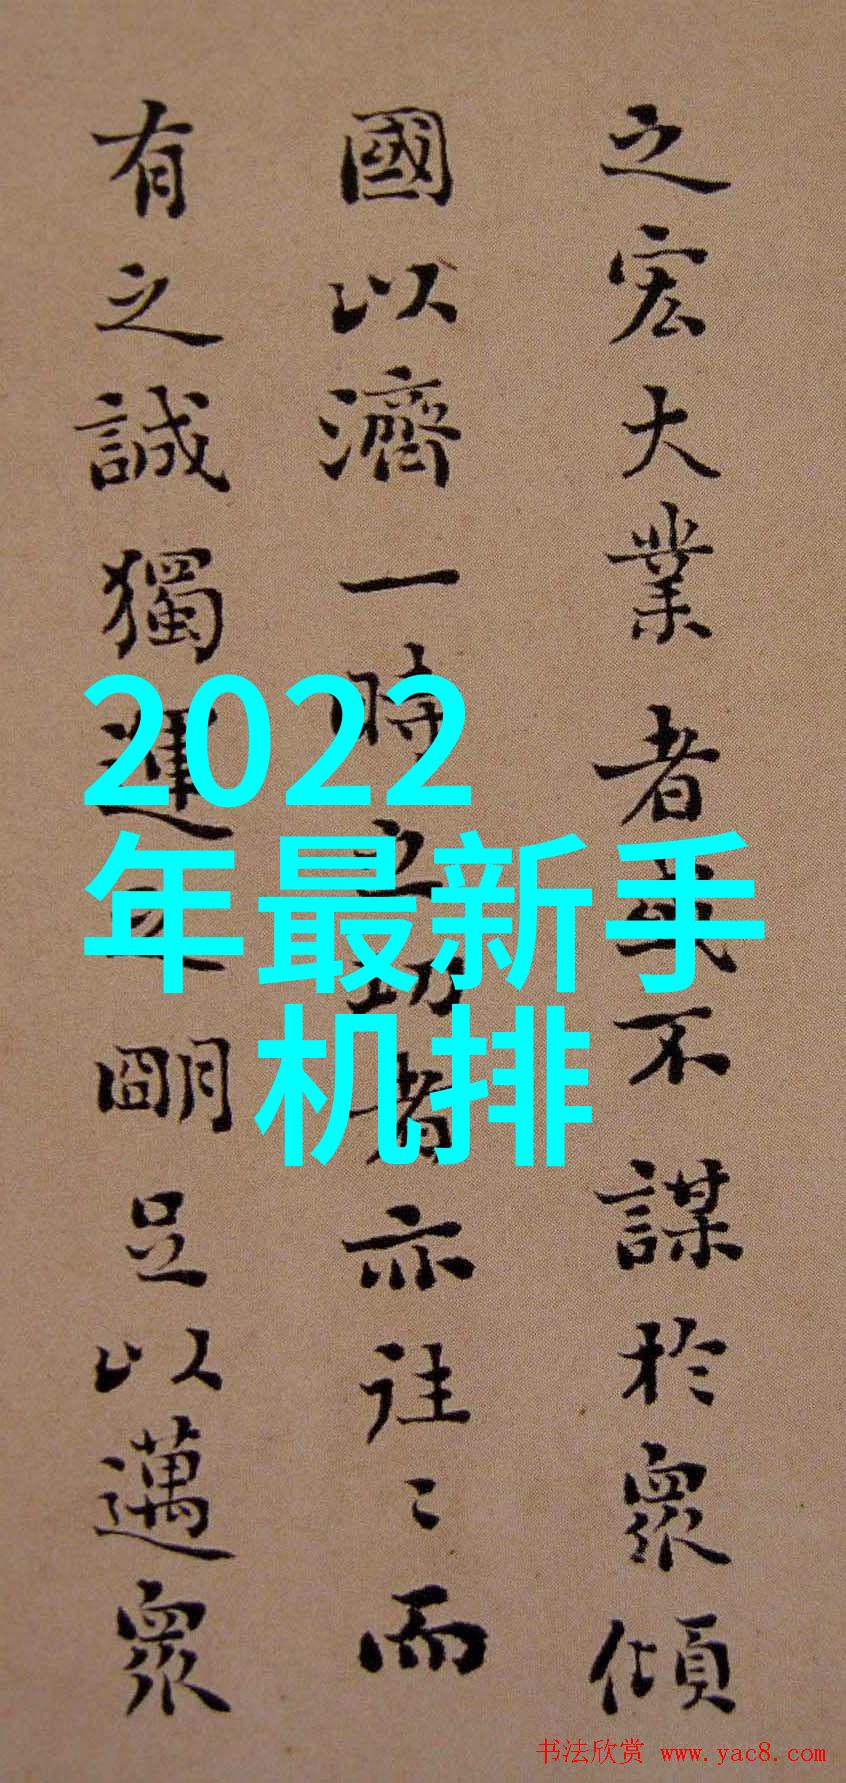 之宏大業者或不謀於衆傾
國以濟一時之功者亦往〻而
有之誠獨運之朙足以邁衆
2022
年最新手
机排
书法欣赏 www.yac8.com